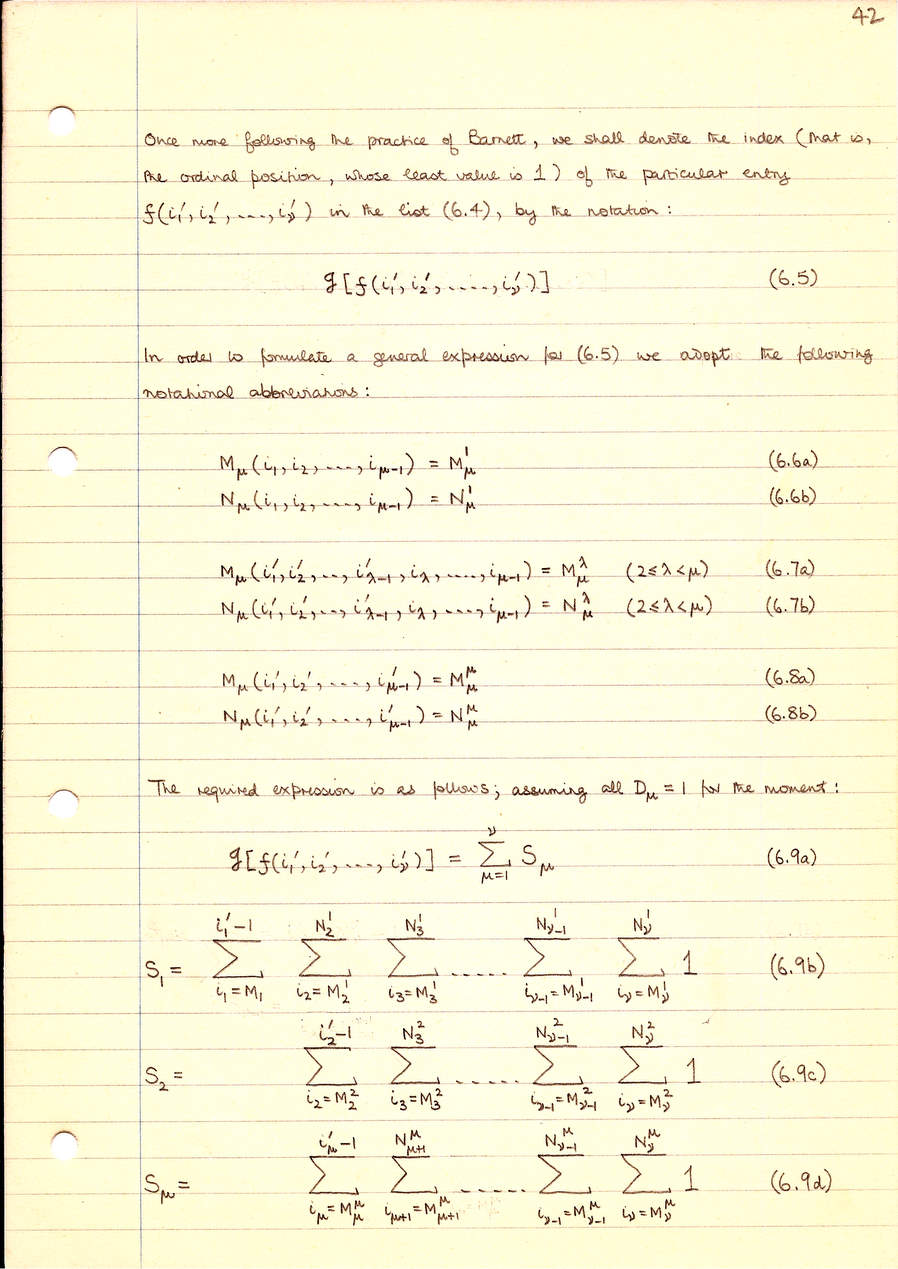 42
Once more following the practice of Barnett, we shall denote the index (that is,
the ordinal position, whose least value is 1) of the particular entry
f(i₁′, i₂′, ...., i_ν′) in the list (6.4), by the notation:
g[f(i₁′, i₂′, ....., i_ν′)] (6.5)
In order to formulate a general expression for (6.5) we adopt the following
notational abbreviations:
M_μ(i₁, i₂, ...., i_μ−1) = M_μ^1 (6.6a)
N_μ(i₁, i₂, ...., i_μ−1) = N_μ^1 (6.6b)
M_μ(i₁′, i₂′, ..., i′_λ−1, i_λ, ....., i_μ−1) = M_μ^λ (2≤λ<μ) (6.7a)
N_μ(i₁′, i₂′, ..., i′_λ−1, i_λ, ....., i_μ−1) = N_μ^λ (2≤λ<μ) (6.7b)
M_μ(i₁′, i₂′, ...., i′_μ−1) = M_μ^μ (6.8a)
N_μ(i₁′, i₂′, ...., i′_μ−1) = N_μ^μ (6.8b)
The required expression is as follows; assuming all D_μ = 1 for the moment:
g[f(i₁′, i₂′, ...., i_ν′)] = ∑_{μ=1}^{ν} S_μ (6.9a)
S₁ = ∑_{i₁=M₁}^{i₁′−1} ∑_{i₂=M₂^1}^{N₂^1} ∑_{i₃=M₃^1}^{N₃^1} ...... ∑_{i_ν−1=M_ν−1^1}^{N_ν−1^1} ∑_{i_ν=M_ν^1}^{N_ν^1} 1 (6.9b)
S₂ = ∑_{i₂=M₂^2}^{i₂′−1} ∑_{i₃=M₃^2}^{N₃^2} ...... ∑_{i_ν−1=M_ν−1^2}^{N_ν−1^2} ∑_{i_ν=M_ν^2}^{N_ν^2} 1 (6.9c)
S_μ = ∑_{i_μ=M_μ^μ}^{i_μ′−1} ∑_{i_μ+1=M_μ+1^μ}^{N_μ+1^μ} ...... ∑_{i_ν−1=M_ν−1^μ}^{N_ν−1^μ} ∑_{i_ν=M_ν^μ}^{N_ν^μ} 1 (6.9d)